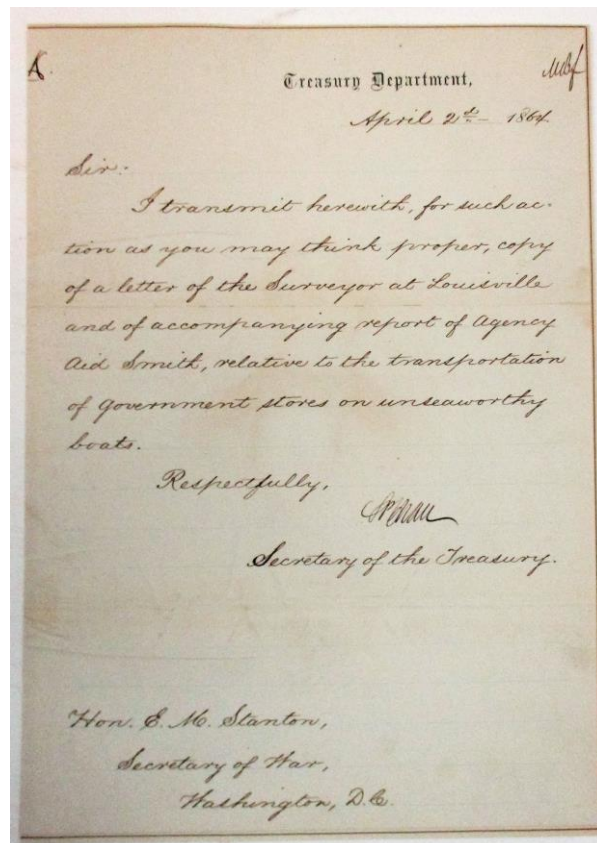 A.
Treasury Department,
April 2d 1864.
Sir:
I transmit herewith, for such ac-
tion as you may think proper, copy
of a letter of the Surveyor at Louisville
and of accompanying report of Agency
Aid Smith, relative to the transportation
of Government stores on unseaworthy
boats.
Respectfully,
SPChase
Secretary of the Treasury.
Hon. E. M. Stanton,
Secretary of War,
Washington, D.C.